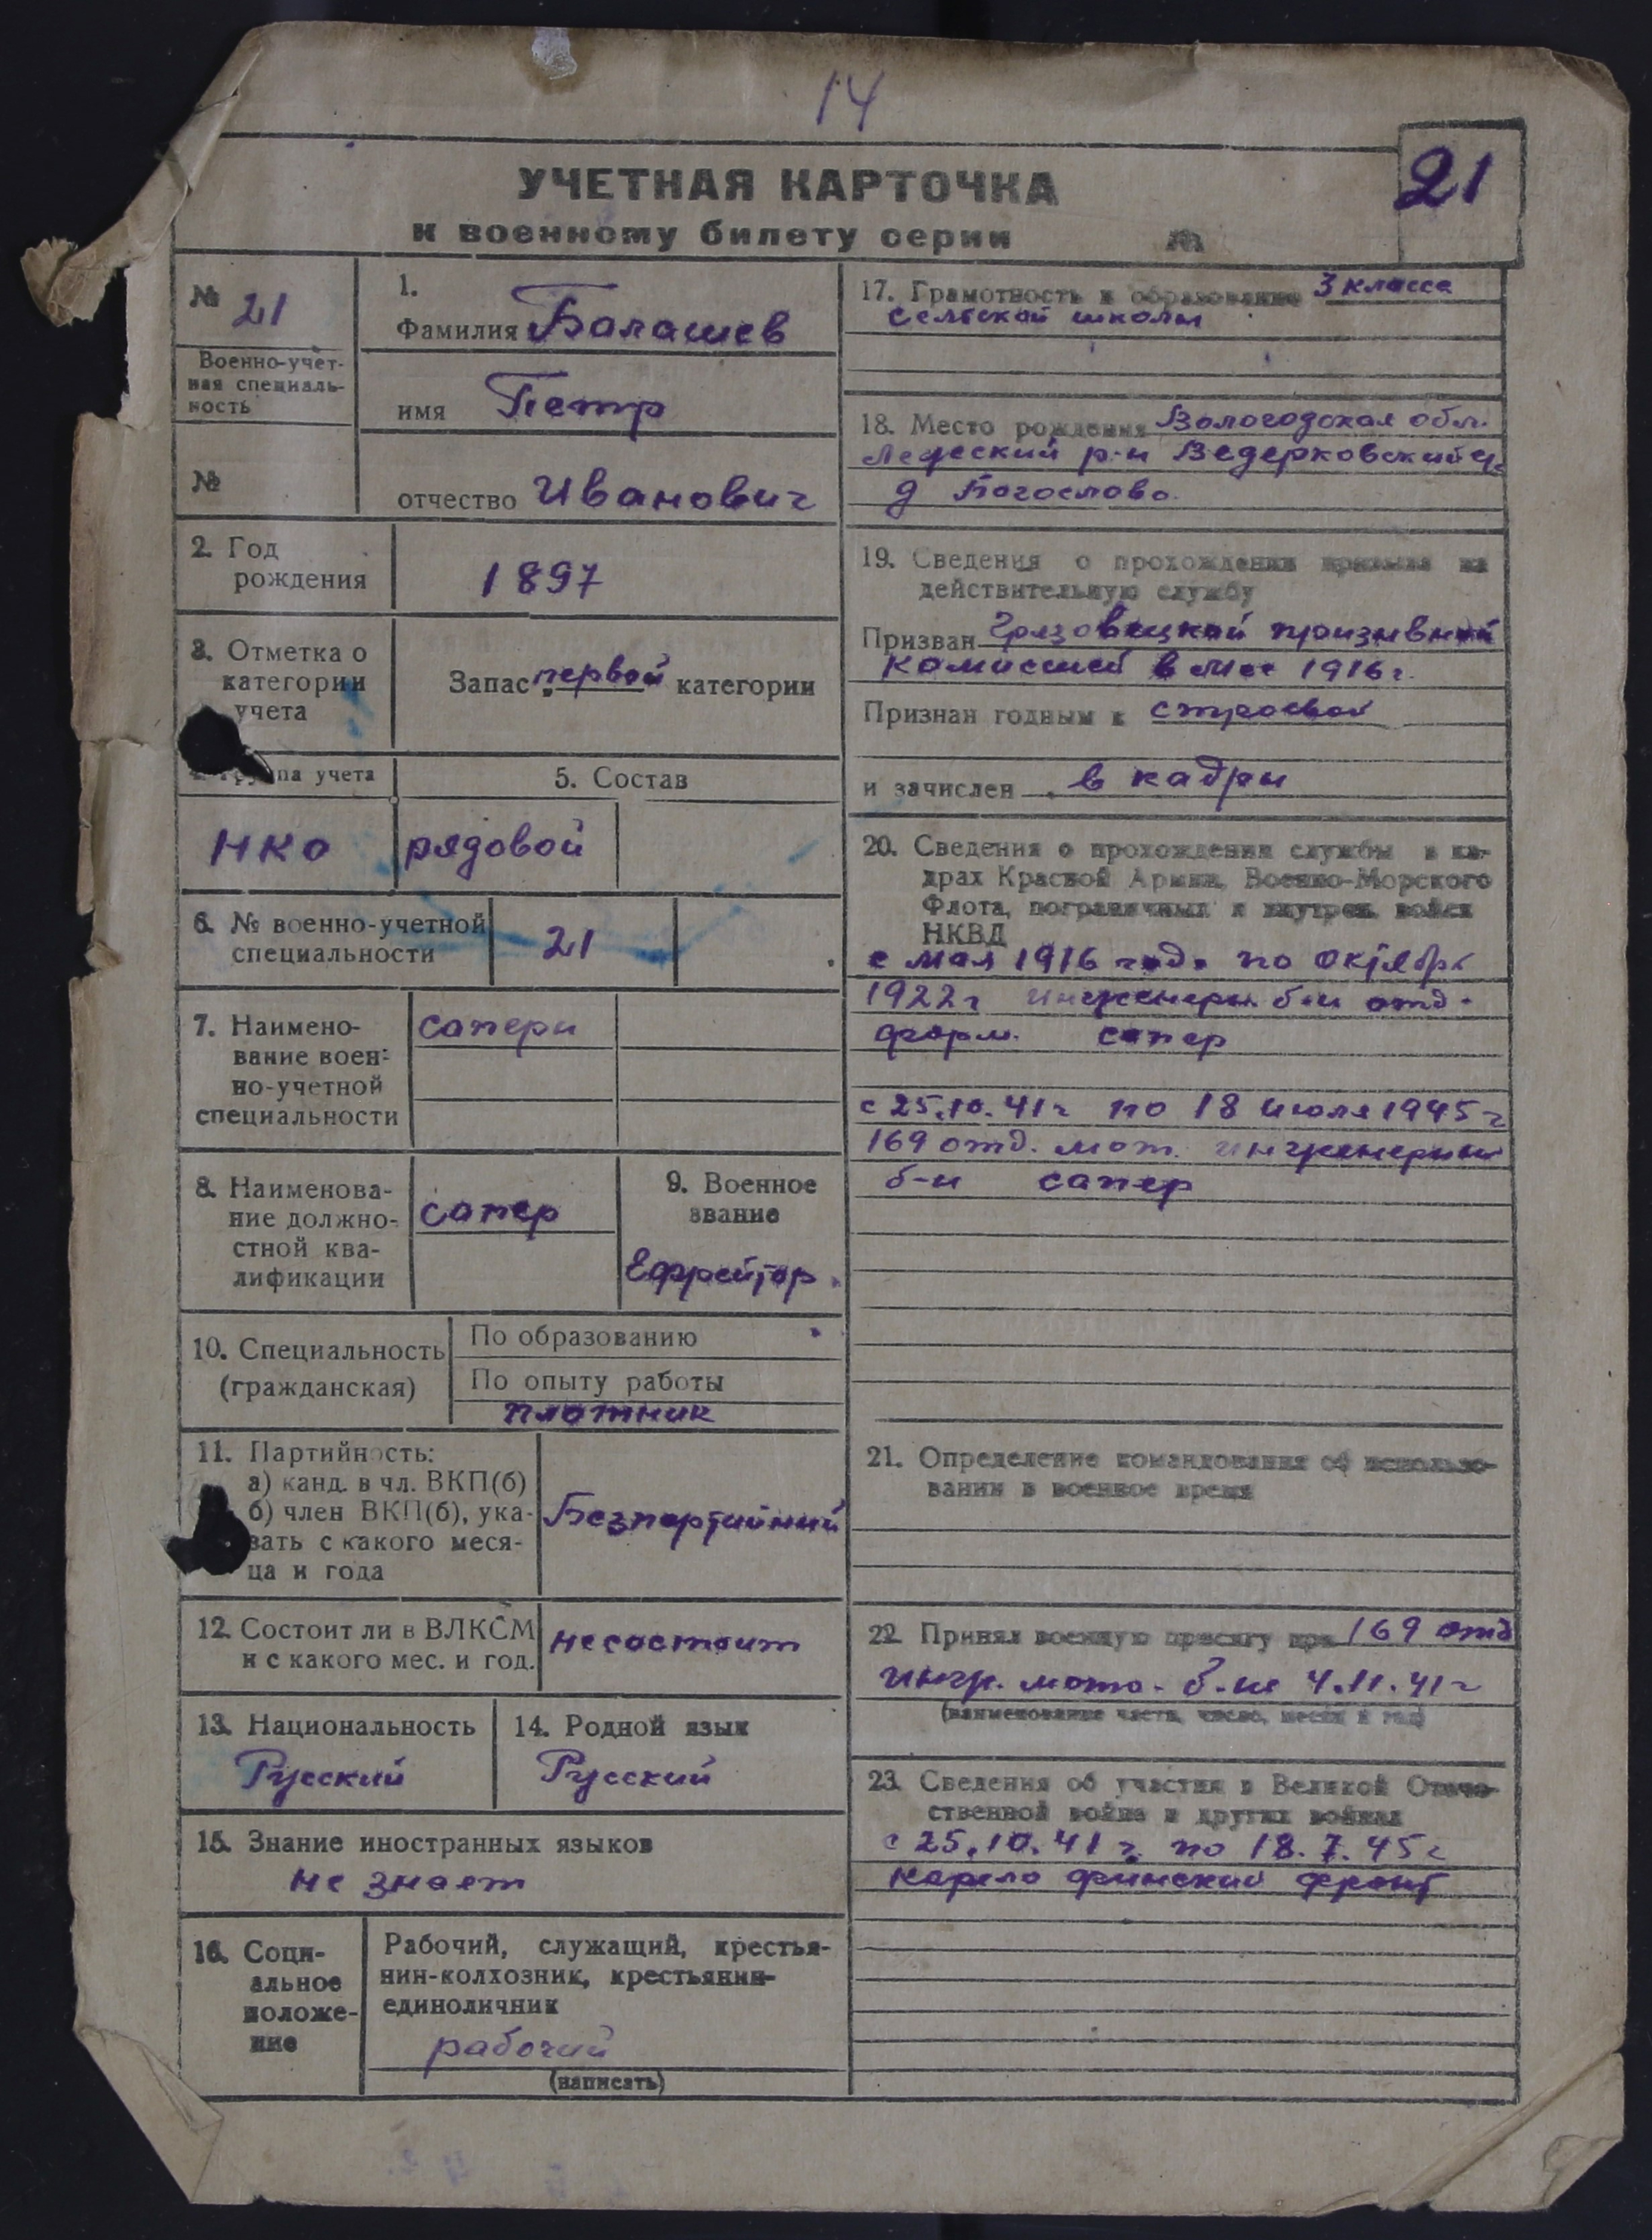 14
21
УЧЕТНАЯ КАРТОЧКА
к военному билету серии №
№ 21
Военно-учет-
ная специаль-
ность
№
1.
Фамилия Балашев
имя Петр
отчество Иванович
2. Год
рождения
1897
3. Отметка о
категории
учета
Запас первой категории
4. Группа учета
5. Состав
НКО
рядовой
6. № военно-учетной
специальности
21
7. Наимено-
вание воен-
но-учетной
специальности
саперы
8. Наименова-
ние должно-
стной ква-
лификации
сапер
9. Военное
звание
Ефрейтор.
10. Специальность
(гражданская)
По образованию
По опыту работы
плотник
11. Партийность:
а) канд. в чл. ВКП(б)
б) член ВКП(б), ука-
зать с какого меся-
ца и года
Безпартийный
12. Состоит ли в ВЛКСМ
и с какого мес. и год.
несостоит
13. Национальность
Русский
14. Родной язык
Русский
15. Знание иностранных языков
не знает
16. Соци-
альное
положе-
ние
Рабочий, служащий, крестья-
нин-колхозник, крестьянин-
единоличник
рабочий
(написать)
17. Грамотность и образование 3 класса
сельской школы
18. Место рождения Вологодская обл.
р-н Ведерковский
д Богослово.
19. Сведения о прохождении призыва на
действительную службу
Призван Грязовецкой призывной
комиссией в мае 1916г.
Признан годным к строевой
и зачислен в кадры
20. Сведения о прохождении службы в ка-
драх Красной Армии, Военно-Морского
Флота, пограничных и внутрен. войск
НКВД
с мая 1916 года по октябрь
1922г инженерн. б-н отд.
форм. сапер
с 25.10.41г по 18 июля 1945г
169 отд. мот. инженерный
б-н сапер
21. Определение командования об использо-
вании в военное время
22. Принял военную присягу при 169 отд
инж. мото. б-не 4.11.41г
(наименование части, число, месяц и год)
23. Сведения об участии в Великой Отече-
ственной войне и других войнах
с 25.10.41г. по 18.7.45г
карело финский фронт